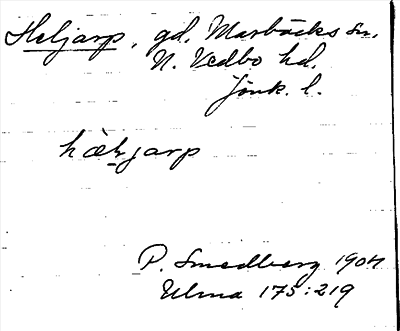 Heljarp, gd. Marbäcks sn.
N. Vedbo hd.
Jönk. l.
hæljarp
P. Smedberg 1904
Ulma 175:219